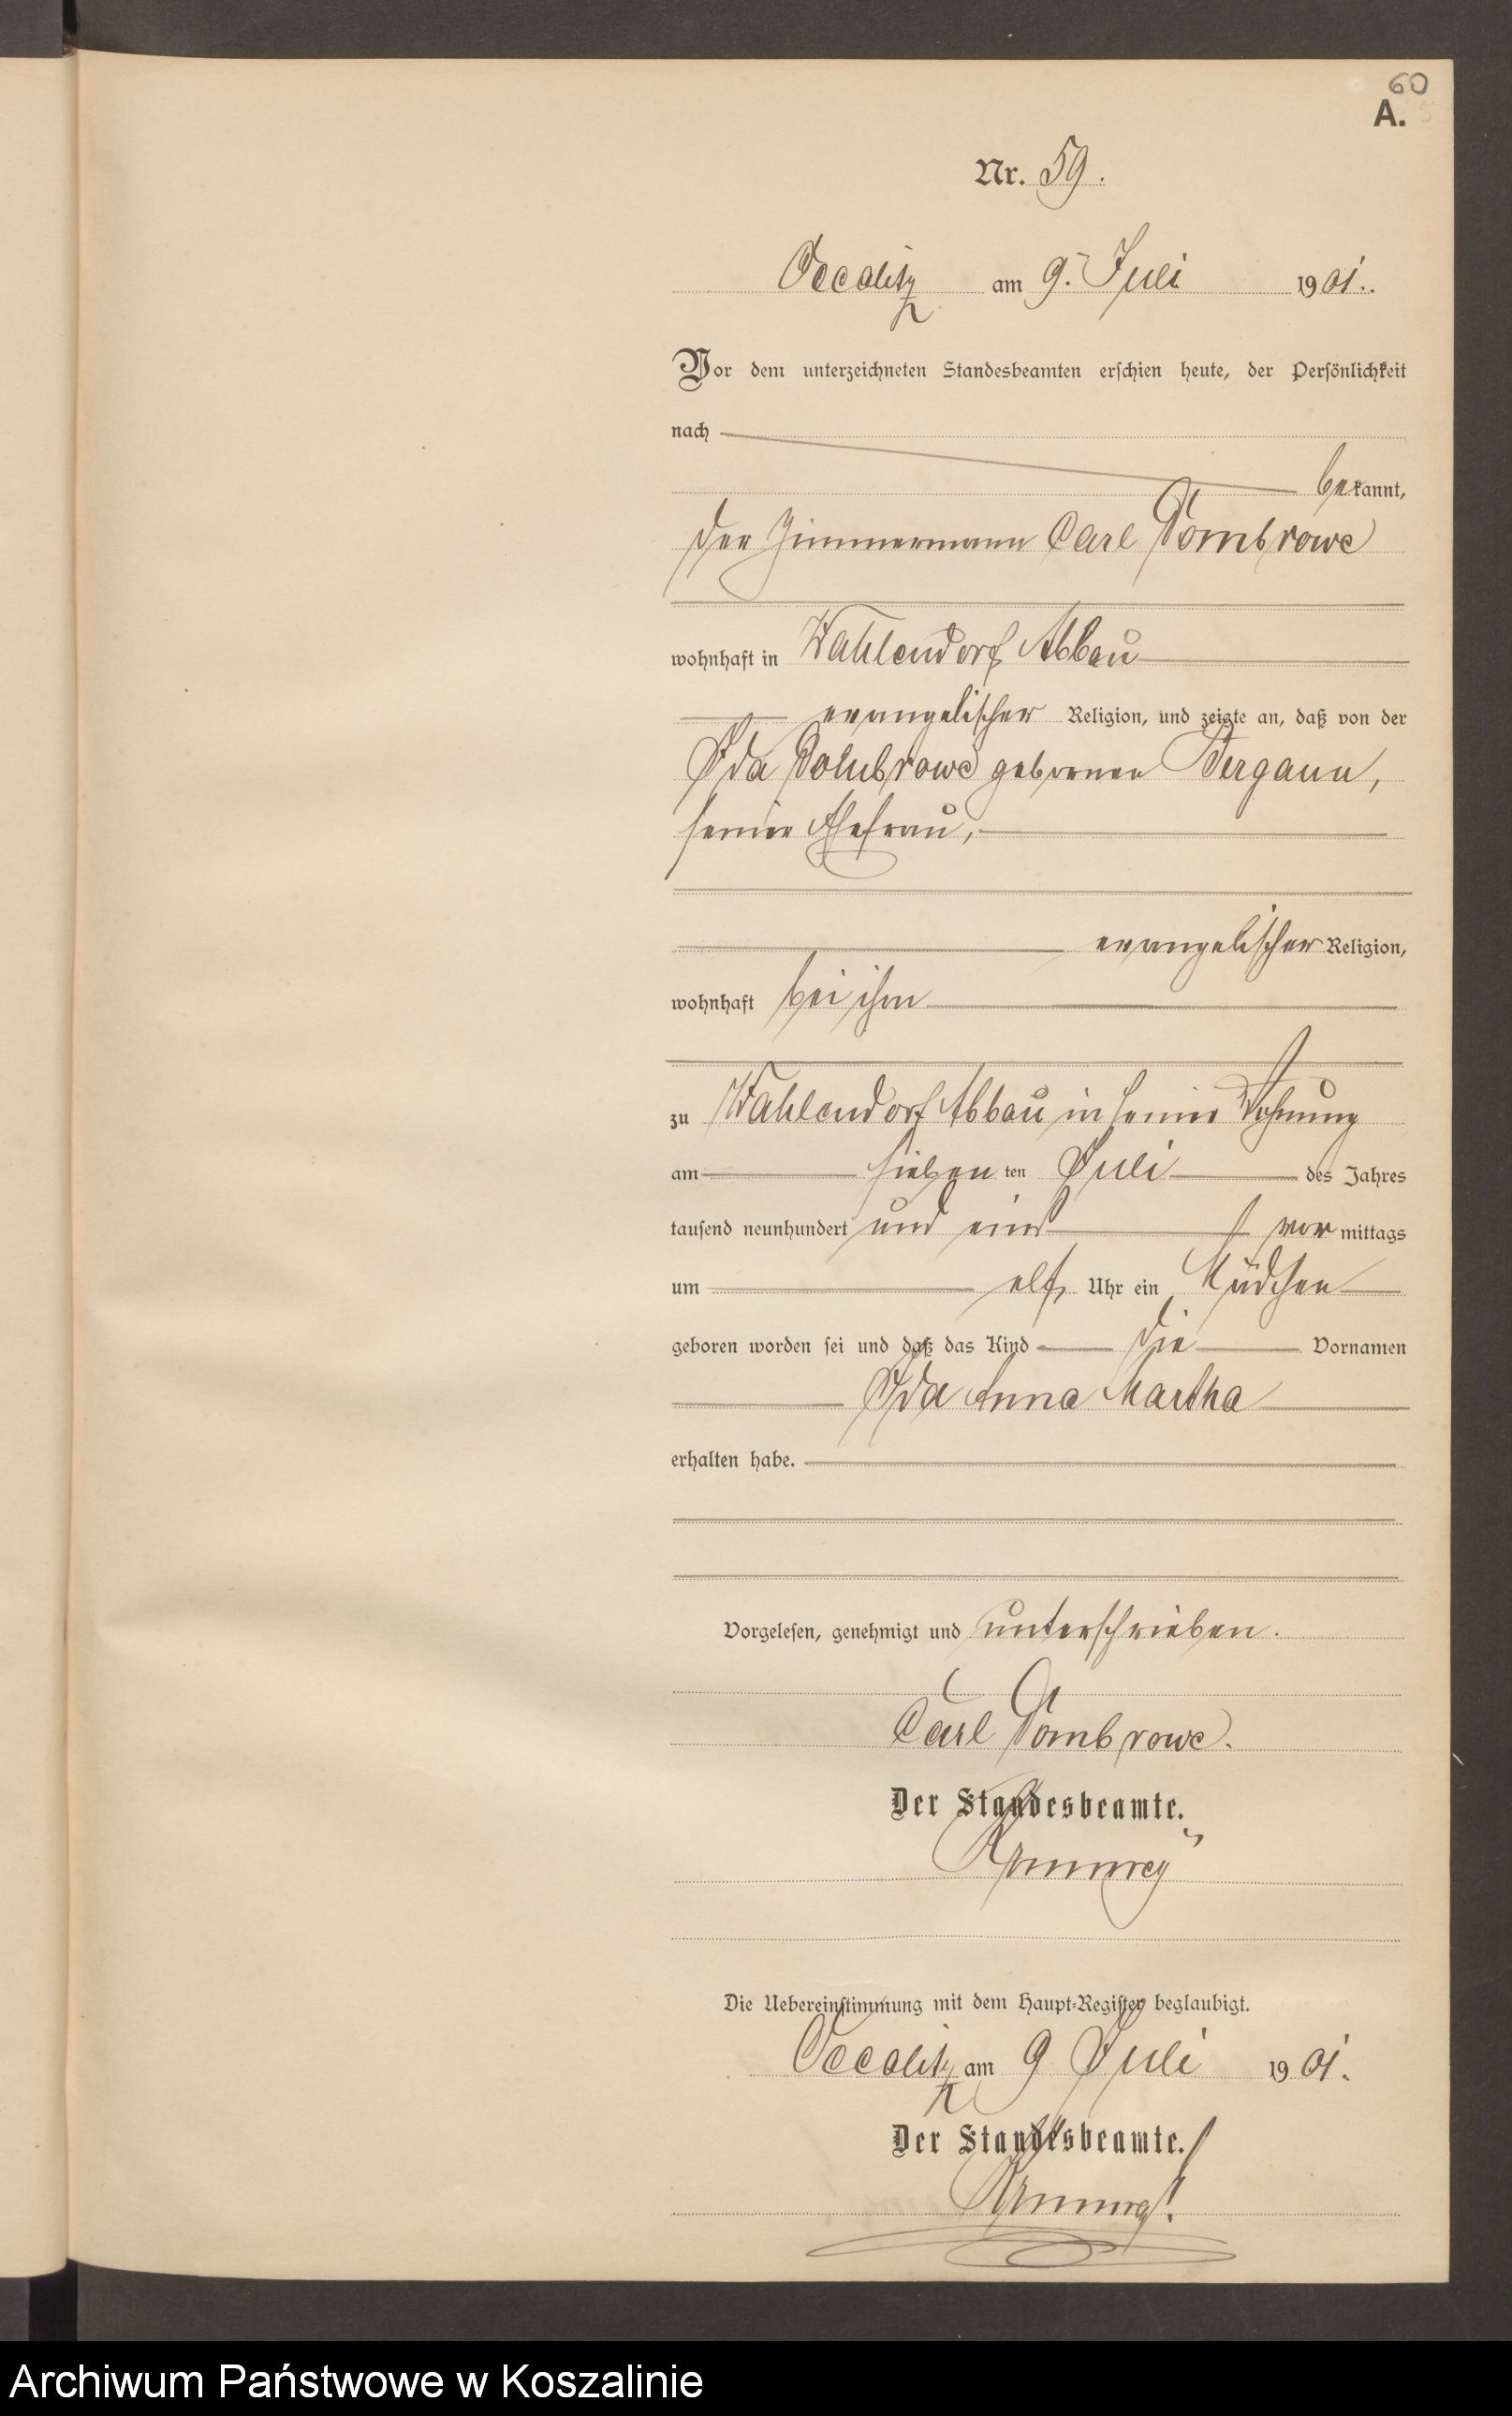 60
A.
Nr. 59.
Occalitz am 9. Juli 1901.
Vor dem unterzeichneten Standesbeamten erschien heute, der Persönlichkeit
nach
bekannt,
der Zimmermann Carl Dombrowe
wohnhaft in Wahlendorf Abbau
evangelischer Religion, und zeigte an, daß von der
Ida Dombrowe geborenen Bergann,
seiner Ehefrau,
evangelischer Religion,
wohnhaft bei ihm
zu Wahlendorf Abbau in seiner Wohnung
am sieben ten Juli des Jahres
tausend neunhundert und eins vor mittags
um elf Uhr ein Mädchen
geboren worden sei und daß das Kind die Vornamen
Ida Anna Martha
erhalten habe.
Vorgelesen, genehmigt und unterschrieben.
Carl Dombrowe.
Der Standesbeamte.
Die Uebereinstimmung mit dem Haupt-Register beglaubigt.
Occalitz am 9 Juli 1901.
Der Standesbeamte.
Archiwum Państwowe w Koszalinie